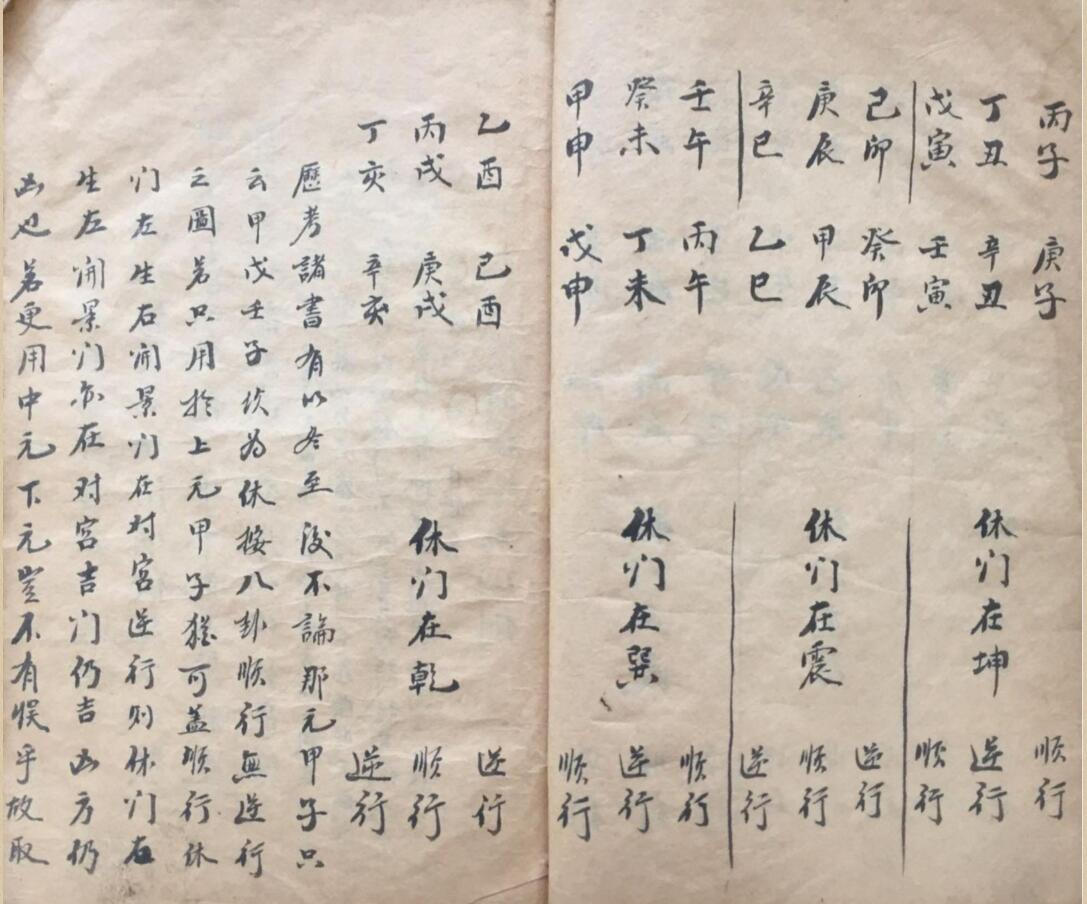 丙子 庚子 順行
丁丑 辛丑 休门在坤 逆行
戊寅 壬寅 順行
己卯 癸卯 逆行
庚辰 甲辰 休门在震 順行
辛巳 乙巳 逆行
壬午 丙午 順行
癸未 丁未 休门在巽 逆行
甲申 戊申 順行
乙酉 己酉 逆行
丙戌 庚戌 休门在乾 順行
丁亥 辛亥 逆行
歷考諸書有以冬至後不論那元甲子只
云甲戊壬子坎为休按八卦順行無逆行
之圖若只用於上元甲子猶可盖順行休
门左生右開景门在对宮逆行则休门右
生左開景门亦在对宮吉门仍吉凶方仍
凶也若更用中元下元豈不有悞乎故取